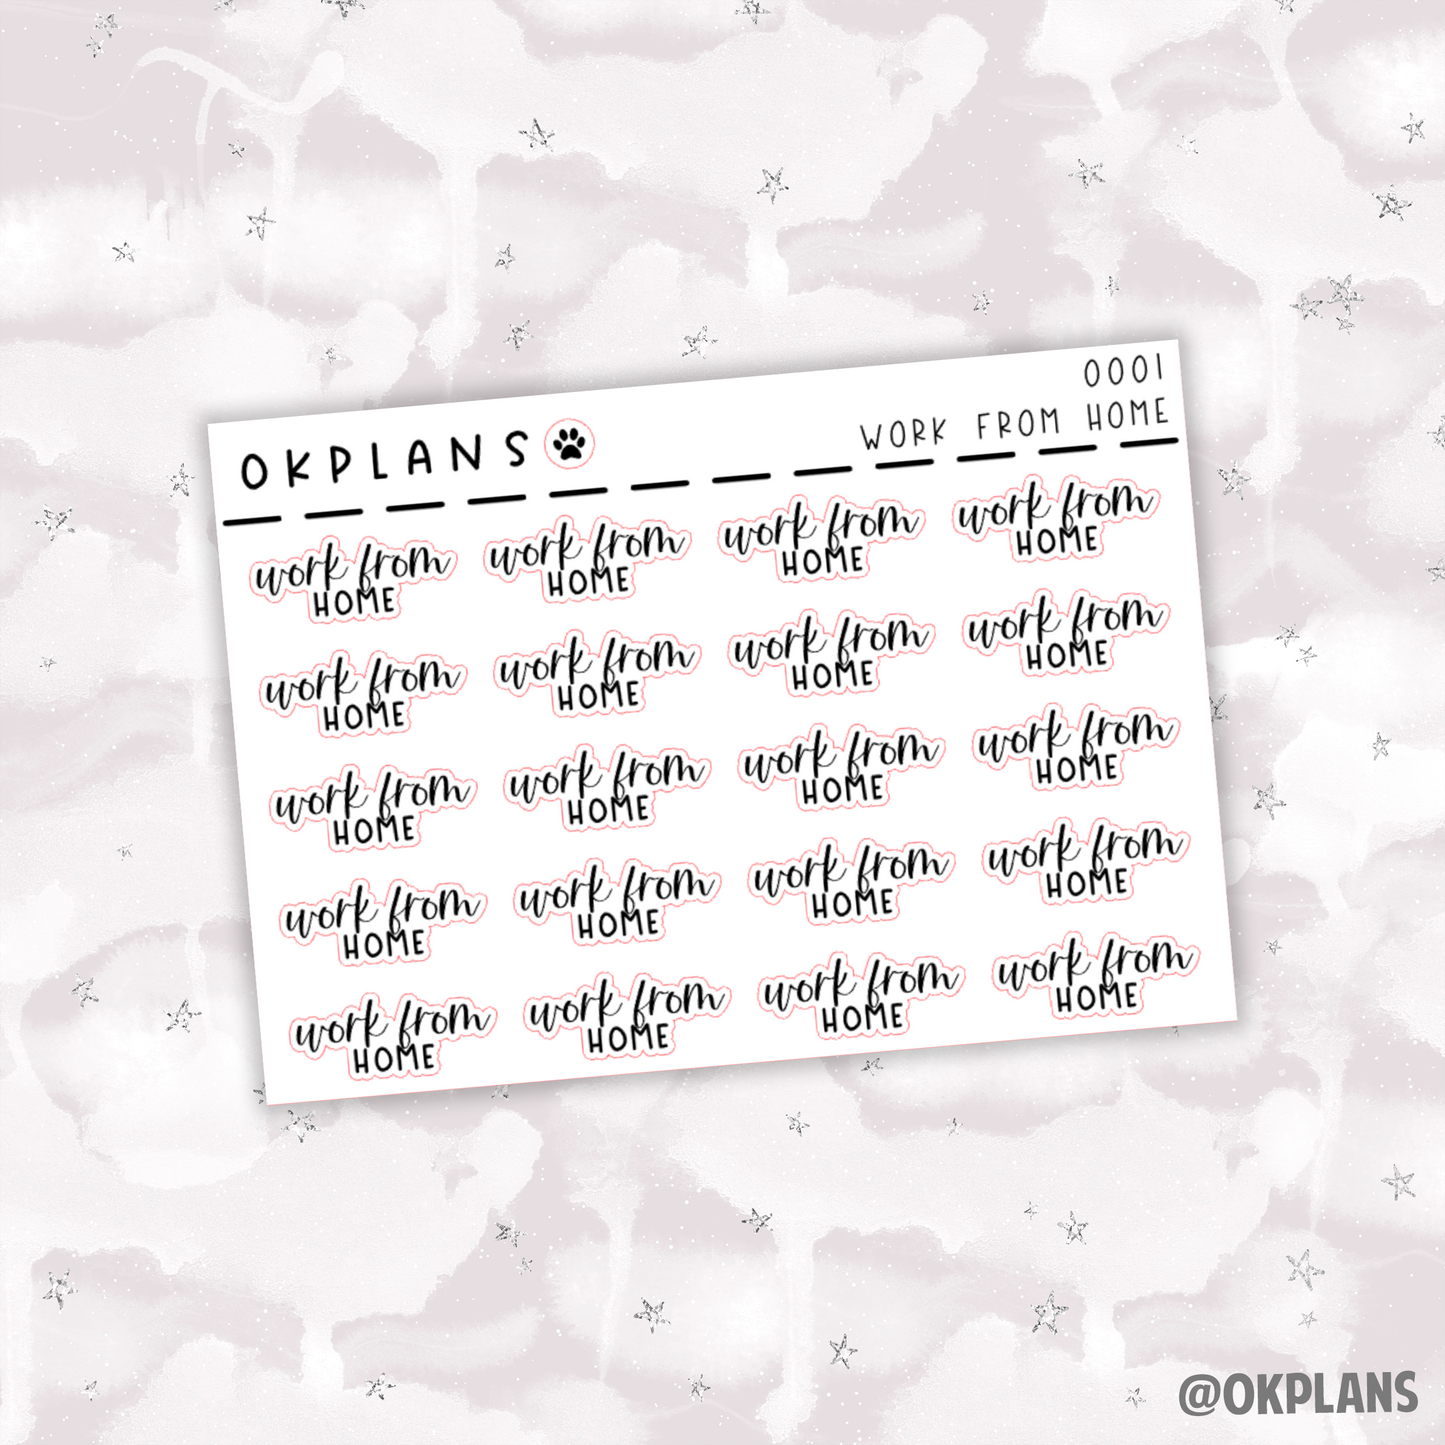 OKPLANS
0001
WORK FROM HOME
work from
HOME
work from
HOME
work from
HOME
work from
HOME
work from
HOME
work from
HOME
work from
HOME
work from
HOME
work from
HOME
work from
HOME
work from
HOME
work from
HOME
work from
HOME
work from
HOME
work from
HOME
work from
HOME
work from
HOME
work from
HOME
work from
HOME
work from
HOME
@OKPLANS